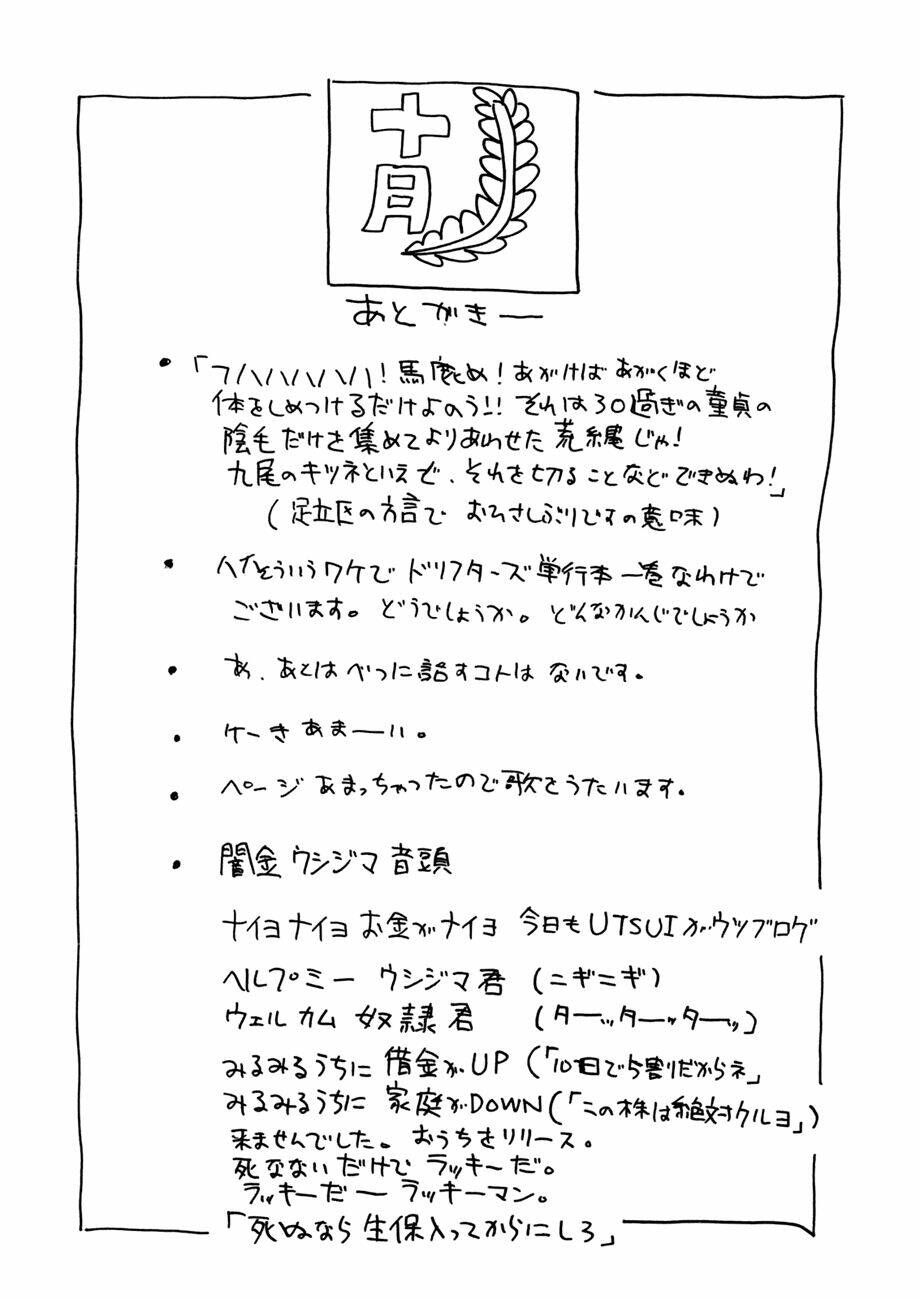 十月
あとがきー
・「フハハハハハ!馬鹿め!あがけばあがくほど
体をしめつけるだけよのう!!それは30過ぎの童貞の
陰毛だけを集めてよりあわせた荒縄じゃ!
九尾のキツネといえど、それを切ることなどできぬわ!」
(足立区の方言でおひさしぶりですの意味)
・ハイそういうワケでドリフターズ単行本一巻なわけで
ございます。どうでしょうか。どんなかんじでしょうか
・あ、あとはべつに話すコトはないです。
・ケーきあまーい。
・ページあまっちゃったので歌をうたいます。
・闇金ウシジマ音頭
ナイヨナイヨお金がナイヨ 今日もUTSUIがウツブログ
ヘルプミー ウシジマ君 (ニギニギ)
ウェルカム 奴隷君 (ターッターッターッ)
みるみるうちに 借金がUP (「10日で5割だからネ」
みるみるうちに 家庭がDOWN (「この株は絶対クルヨ」)
来ませんでした。おうちをリリース。
死なないだけでラッキーだ。
ラッキーだーラッキーマン。
「死ぬなら生保入ってからにしろ」